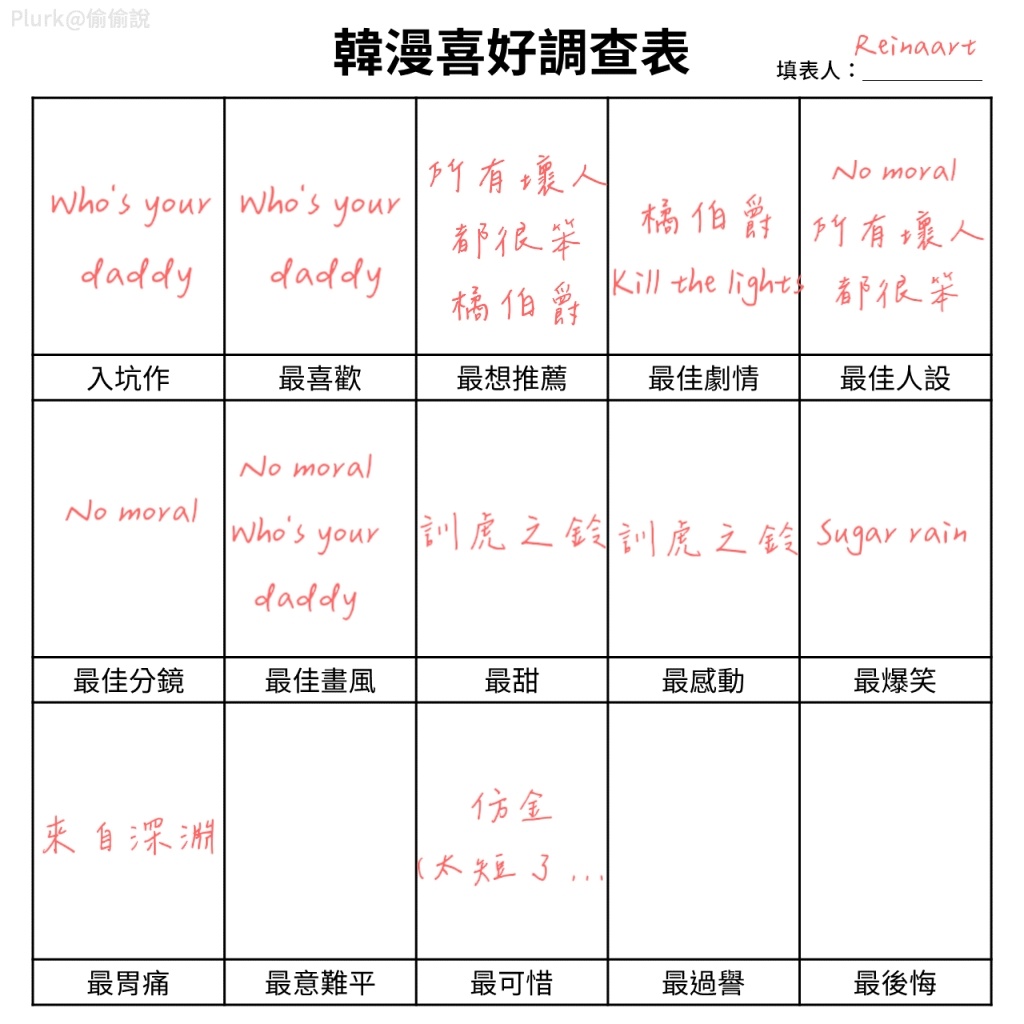 Plurk@偷偷說
韓漫喜好調查表
填表人：Reinaart
Who's your
daddy
Who's your
daddy
所有壞人
都很笨
橘伯爵
橘伯爵
Kill the lights
No moral
所有壞人
都很笨
入坑作
最喜歡
最想推薦
最佳劇情
最佳人設
No moral
No moral
Who's your
daddy
訓虎之鈴
訓虎之鈴
Sugar rain
最佳分鏡
最佳畫風
最甜
最感動
最爆笑
來自深淵
仿金
(太短了...
最胃痛
最意難平
最可惜
最過譽
最後悔